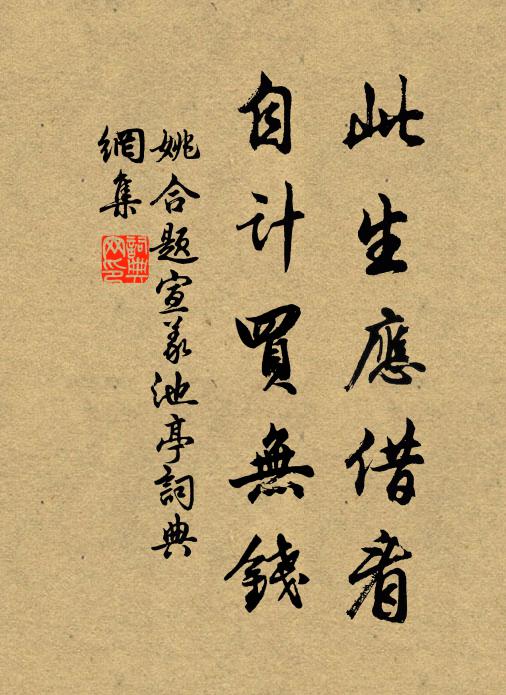 此生應借看
自計買無錢
姚合題宣義池亭詞典
網集
詞典網印